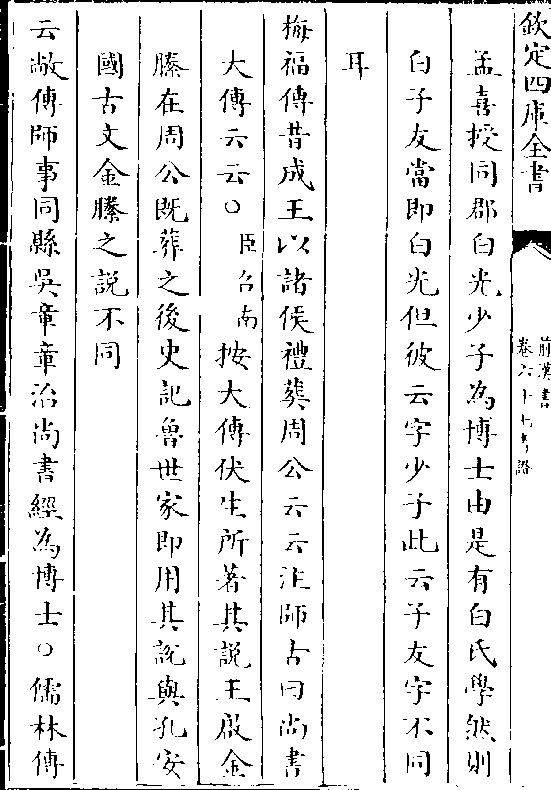 欽定四庫全書
前漢書
卷六十七考證
孟喜授同郡白光少子為博士由是有白氏學然則
白子友當即白光但彼云字少子此云子友字不同
耳
梅福傳昔成王以諸侯禮葬周公云云注師古曰尚書
大傳云云○臣召南按大傳伏生所著其說王啟金
縢在周公既葬之後史記魯世家即用其說與孔安
國古文金縢之說不同
云敞傳師事同縣吳章章治尚書經為博士○儒林傳